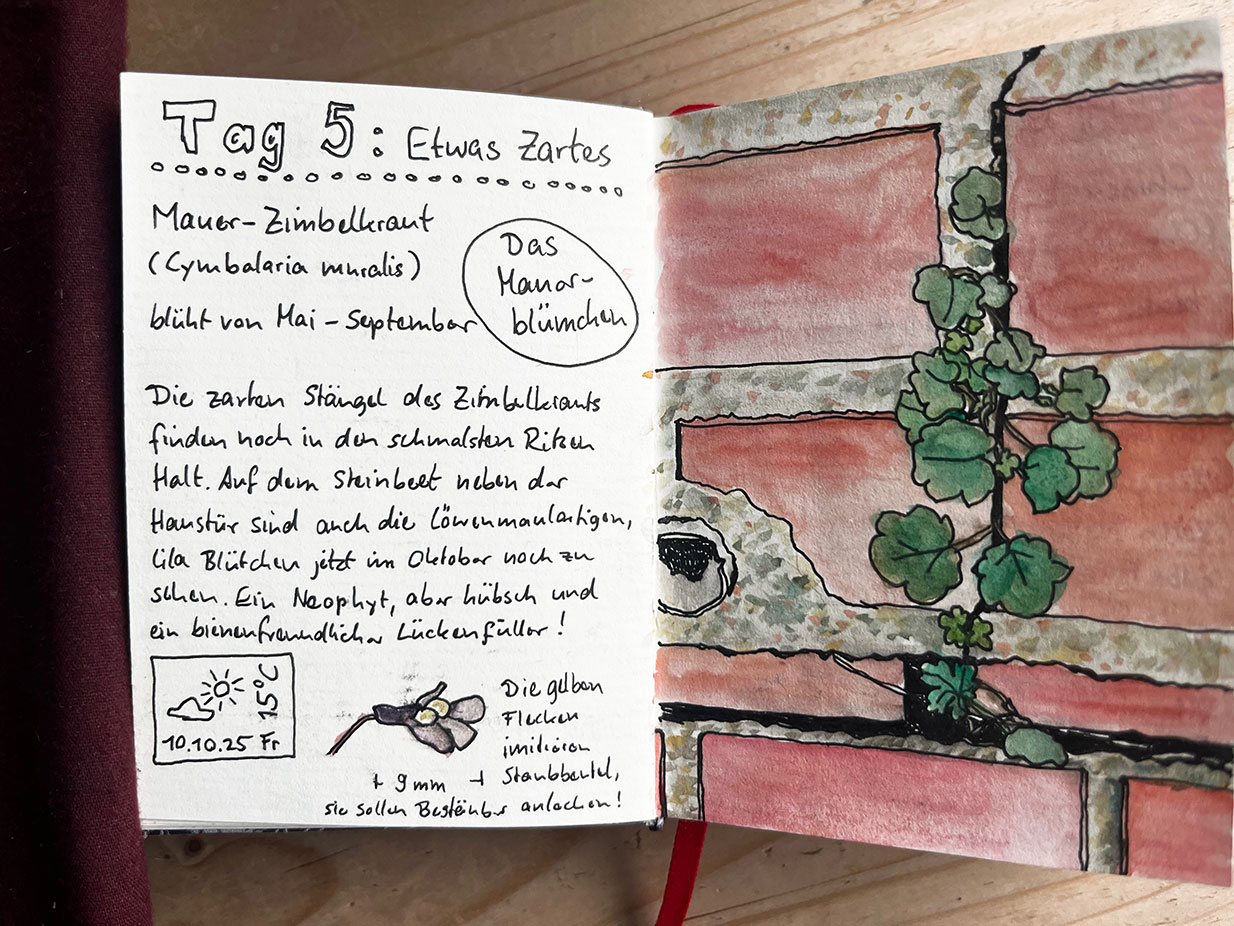 Tag 5: Etwas Zartes
Mauer-Zimbelkraut
(Cymbalaria muralis)
blüht von Mai - September
Das
Mauer-
blümchen
Die zarten Stängel des Zimbelkrauts
finden noch in den schmalsten Ritzen
Halt. Auf dem Steinbeet neben der
Haustür sind auch die Löwenmaulartigen,
lila Blütchen jetzt im Oktober noch zu
sehen. Ein Neophyt, aber hübsch und
ein bienenfreundlicher Lückenfüller!
15°C
10.10.25 Fr
Die gelben
Flecken
imitieren
Staubbeutel,
9mm
sie sollen Bestäuber anlocken!